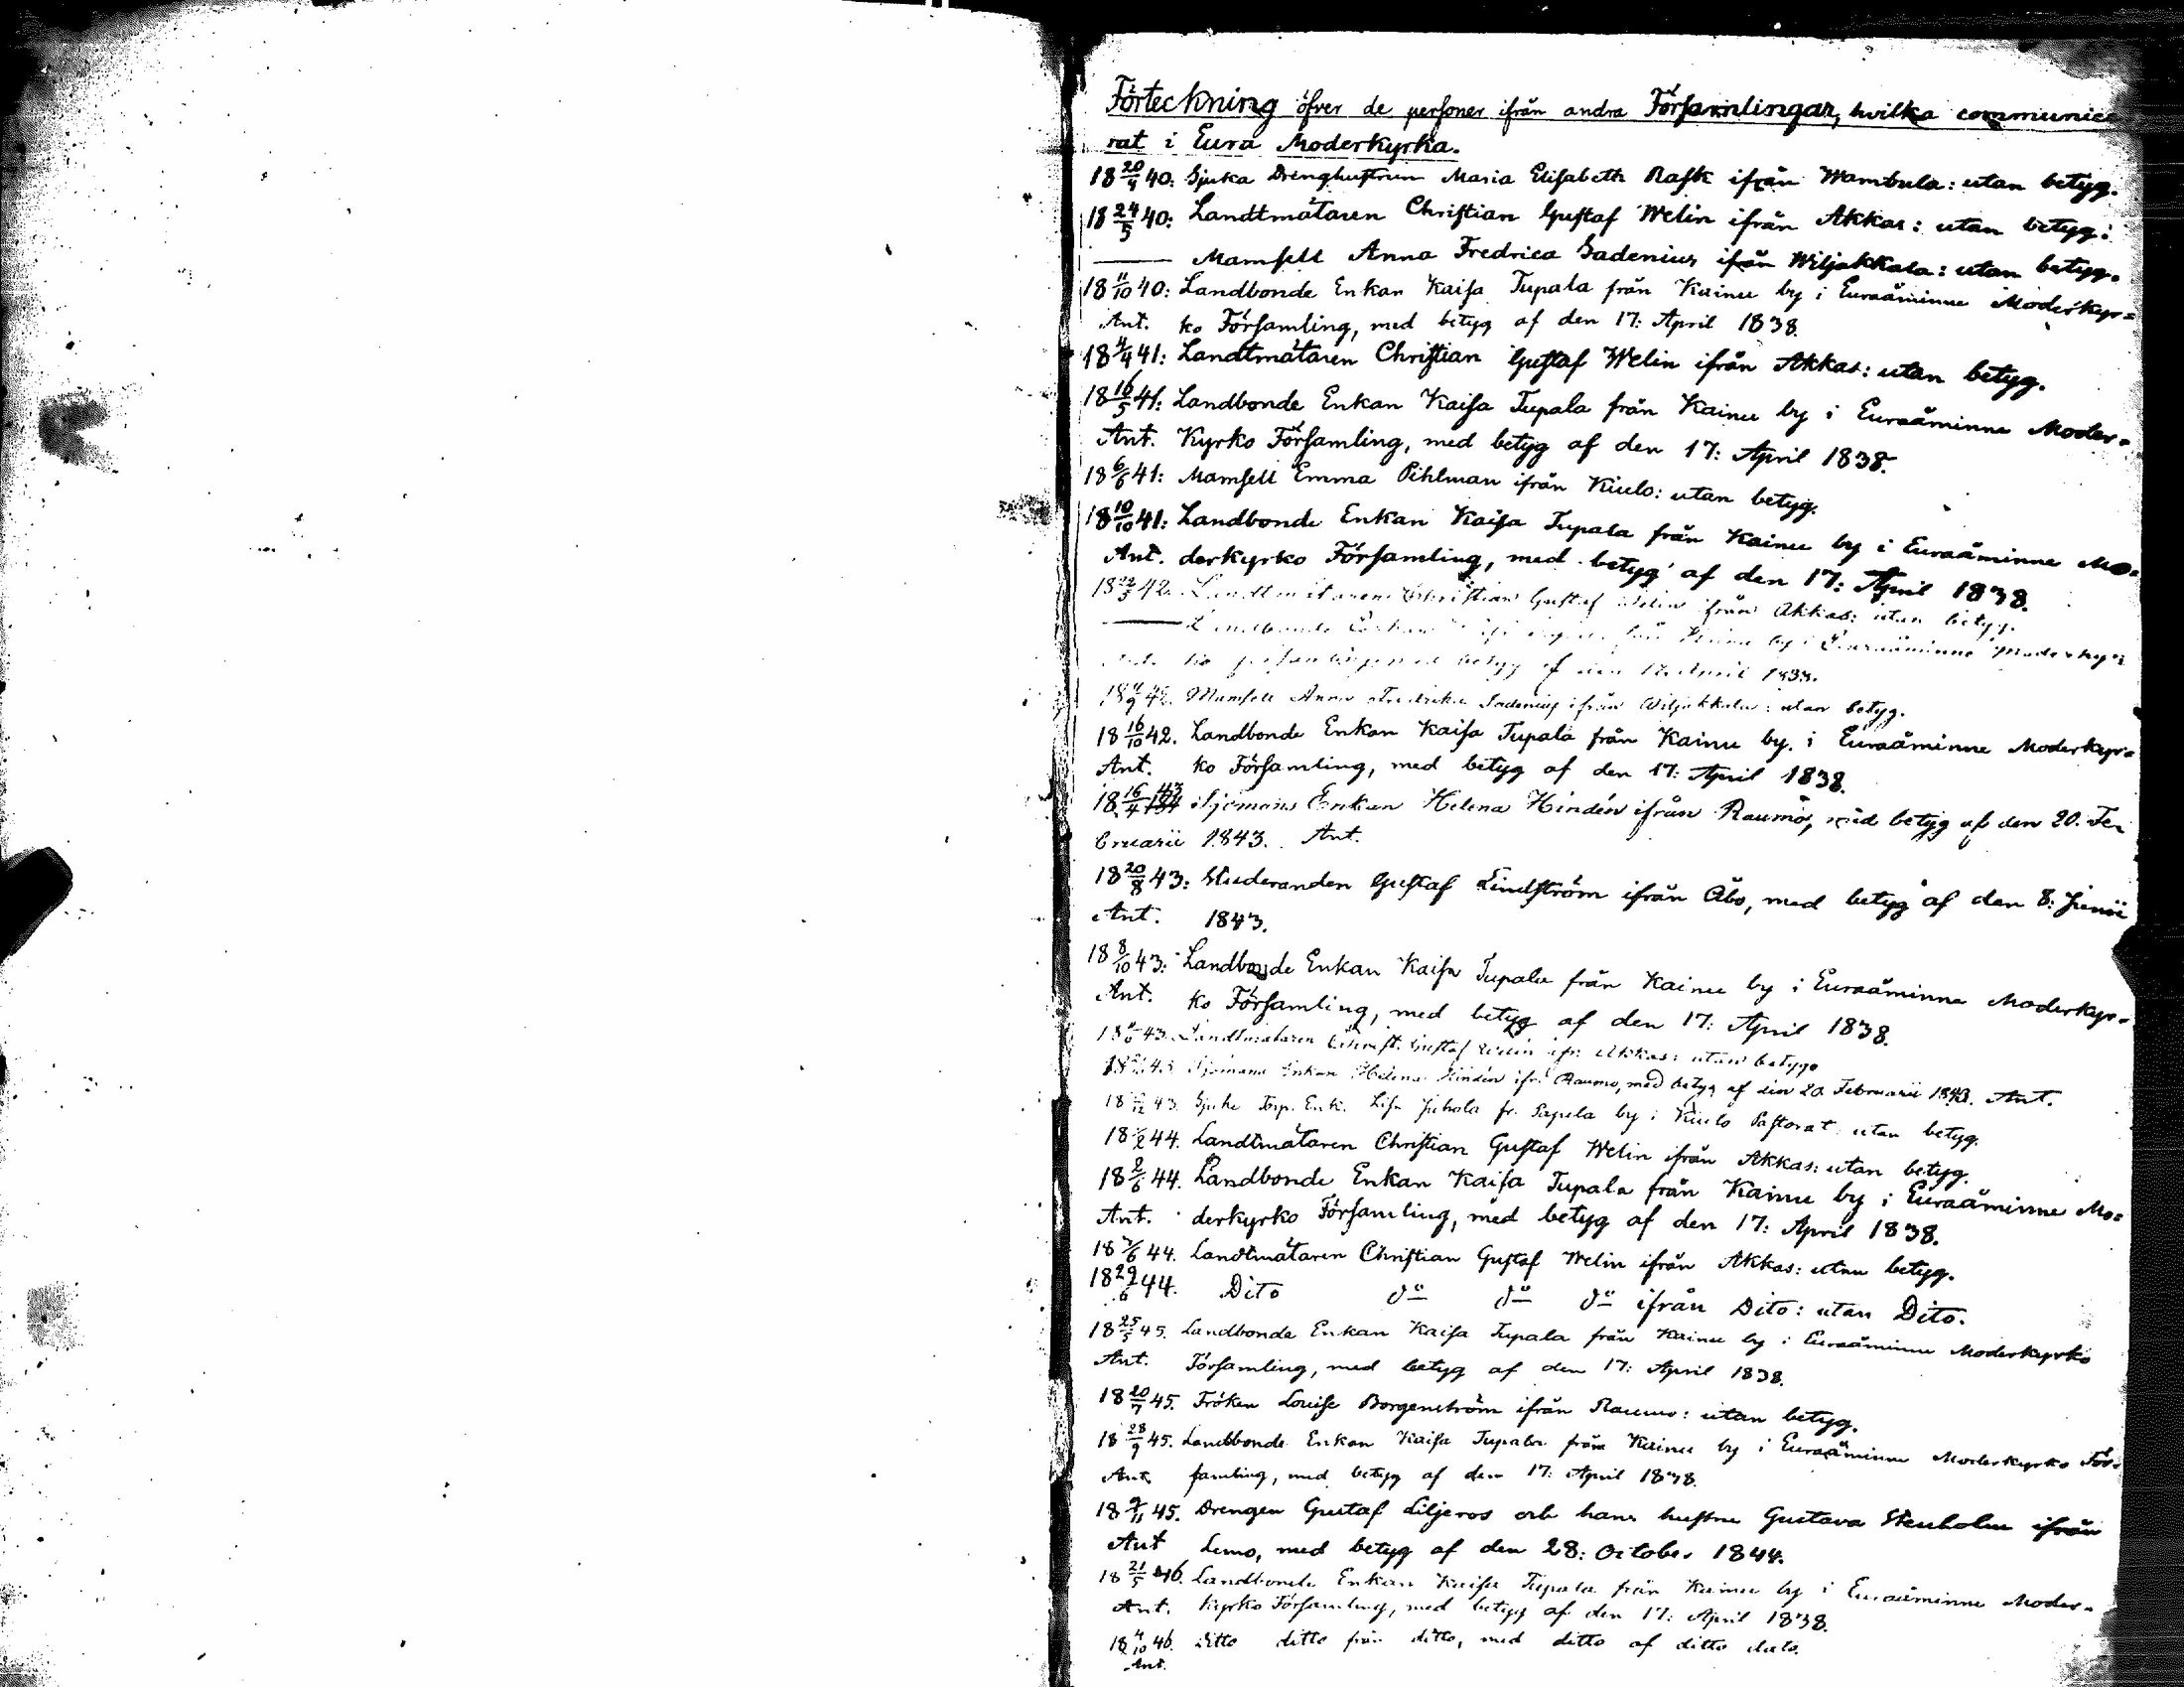 Förteckning öfver de personer ifrån andra Församlingar, hvilka communice
rat i Eura Moderkyrka.
18 20/4 40: Sjuka Drenghustrun Maria Elisabeth Rask ifrån Wambula: utan betyg.
18 24/5 40: Landtmätaren Christian Gustaf Welin ifrån Akkas: utan betyg.
—— Mamsell Anna Fredrica Sadenius ifrån Wiljakkala: utan betyg.
18 11/10 40: Landbonde Enkan Kaisa Tupala från Kainu by i Euraåminne Moderkyr=
Ant. ko Församling, med betyg af den 17: April 1838.
18 4/4 41: Landtmätaren Christian Gustaf Welin ifrån Akkas: utan betyg.
18 16/5 41: Landbonde Enkan Kaisa Tupala från Kainu by i Euraåminne Moder=
Ant. Kyrko Församling, med betyg af den 17: April 1838.
18 6/6 41: Mamsell Emma Pihlman ifrån Kiulo: utan betyg.
18 10/10 41: Landbonde Enkan Kaisa Tupala från Kainu by i Euraåminne Mo=
Ant. derkyrko Församling, med betyg af den 17: April 1838.
18 22/5 42. Landtmätaren Christian Gustaf Welin ifrån Akkas: utan betyg.
—— Landbonde Enkan från Kainu by i Euraåminne Moderkyr=
ko med betyg af den 17 April 1838.
Mamsell Anna Fredrika Sadenius ifrån Wiljakkala: utan betyg.
18 16/10 42. Landbonde Enkan Kaisa Tupala från Kainu by i Euraåminne Moderkyr=
Ant. ko Församling, med betyg af den 17: April 1838.
18 16/4 43 Sjömans Enkan Helena Hindén ifrån Raumo, med betyg af den 20. Fe=
bruarii 1843. Ant.
18 20/8 43: Studeranden Gustaf Lindström ifrån Åbo, med betyg af den 8: Junii
Ant. 1843.
18 8/10 43: Landbonde Enkan Kaisa Tupala från Kainu by i Euraåminne Moderkyr=
Ant. ko Församling, med betyg af den 17: April 1838.
43. Landtmätaren Christ. Gustaf Welin ifr. Akkas: utan betyg.
43 Sjömans Enkan Helena Hindén ifr. Raumo, med betyg af den 20 Februarii 1843. Ant.
43. Sjuke Torp. Enk. Lisa Juhola fr. Papula by i Kiulo Pastorat utan betyg.
44. Landtmätaren Christian Gustaf Welin ifrån Akkas: utan betyg.
18 2/6 44. Landbonde Enkan Kaisa Tupala från Kainu by i Euraåminne Mo=
Ant. derkyrko Församling, med betyg af den 17: April 1838.
44. Landtmätaren Christian Gustaf Welin ifrån Akkas: utan betyg.
44. Dito do do do ifrån Dito: utan Dito.
18 25/5 45. Landbonde Enkan Kaisa Tupala från Kainu by i Euraåminne Moderkyrko
Ant. Församling, med betyg af den 17: April 1838.
18 20/7 45. Fröken Louise Borgenström ifrån Raumo: utan betyg.
18 28/9 45. Landbonde Enkan Kaisa Tupala från Kainu by i Euraåminne Moderkyrko För=
Ant. samling, med betyg af den 17: April 1838.
18 9/11 45. Drengen Gustaf Liljeros och hans hustru Gustava Stenholm ifrån
Ant Lemo, med betyg af den 28: October 1844.
18 21/5 46. Landbonde Enkan Kaisa Tupala från Kainu by i Euraåminne Moder=
Ant. kyrko Församling, med betyg af den 17: April 1838.
18 4/10 46. Ditto ditto från ditto, med ditto af ditto dato.
Ant.